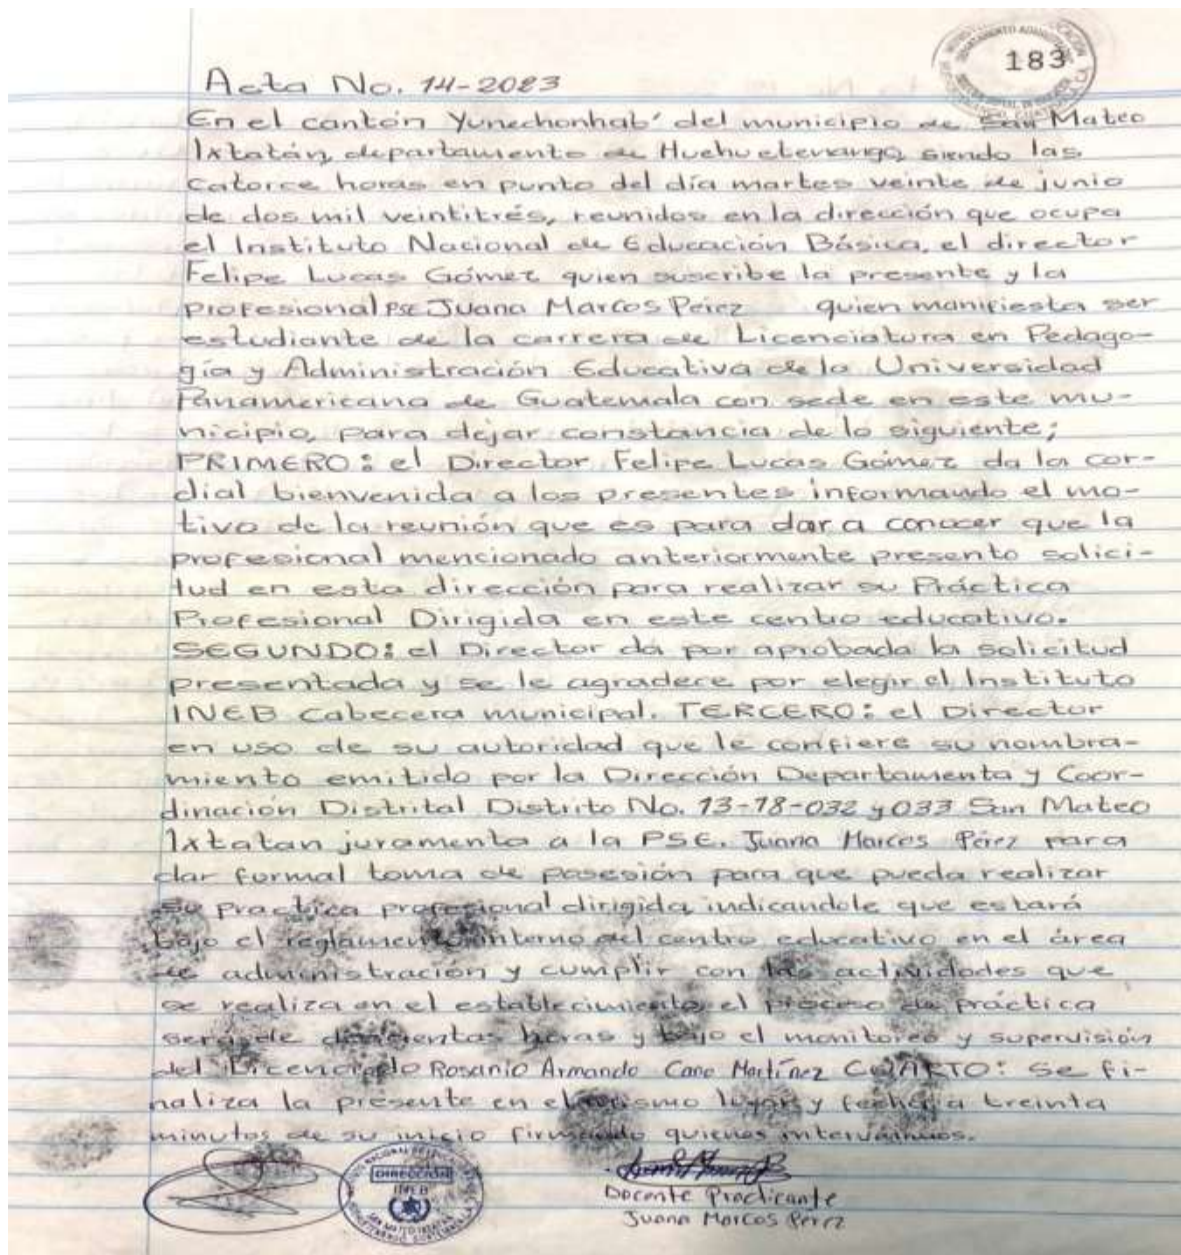 183
Acta No. 14-2023
En el cantón Yunechonhab' del municipio de San Mateo
Ixtatán, departamento de Huehuetenango, siendo las
catorce horas en punto del día martes veinte de junio
de dos mil veintitrés, reunidos en la dirección que ocupa
el Instituto Nacional de Educación Básica, el director
Felipe Lucas Gómez quien suscribe la presente y la
profesional PSE Juana Marcos Pérez quien manifiesta ser
estudiante de la carrera de Licenciatura en Pedago-
gía y Administración Educativa de la Universidad
Panamericana de Guatemala con sede en este mu-
nicipio, para dejar constancia de lo siguiente;
PRIMERO: el Director Felipe Lucas Gómez da la cor-
dial bienvenida a los presentes informando el mo-
tivo de la reunión que es para dar a conocer que la
profesional mencionado anteriormente presento solici-
tud en esta dirección para realizar su Práctica
Profesional Dirigida en este centro educativo.
SEGUNDO: el Director da por aprobada la solicitud
presentada y se le agradece por elegir el Instituto
INEB Cabecera municipal. TERCERO: el Director
en uso de su autoridad que le confiere su nombra-
miento emitido por la Dirección Departamenta y Coor-
dinación Distrital Distrito No. 13-18-032 y 033 San Mateo
Ixtatan juramenta a la PSE. Juana Marcos Pérez para
dar formal toma de posesión para que pueda realizar
su practica profesional dirigida indicandole que estará
bajo el reglamento interno del centro educativo en el área
de administración y cumplir con las actividades que
se realiza en el establecimiento, el proceso de práctica
será de doscientas horas y bajo el monitoreo y supervisión
del Licenciado Rosanio Armando Cano Martínez CUARTO: Se fi-
naliza la presente en el mismo lugar y fecha a treinta
minutos de su inicio firmando quienes intervenimos.
DIRECCIÓN
INEB
Docente Practicante
Juana Marcos Pérez